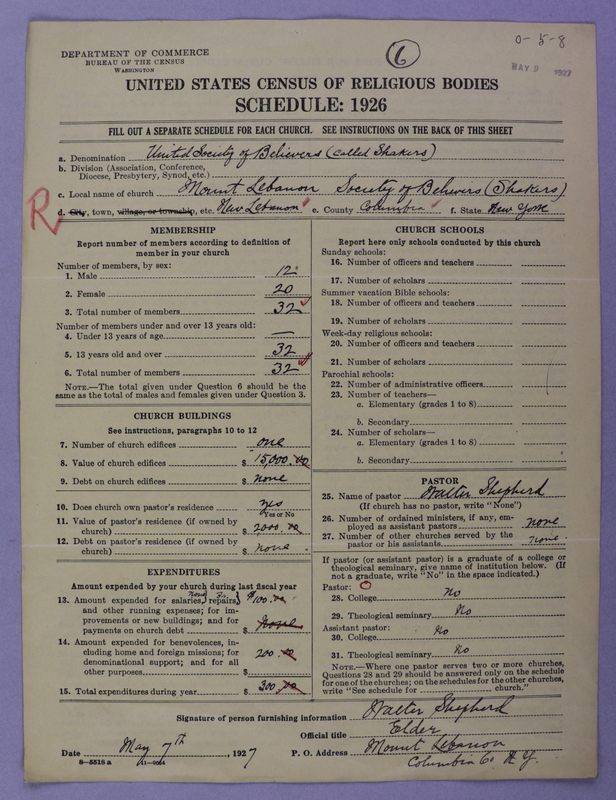 DEPARTMENT OF COMMERCE
BUREAU OF THE CENSUS
WASHINGTON
6
0-5-8
MAY 9 1927
UNITED STATES CENSUS OF RELIGIOUS BODIES
SCHEDULE: 1926
FILL OUT A SEPARATE SCHEDULE FOR EACH CHURCH. SEE INSTRUCTIONS ON THE BACK OF THIS SHEET
a. Denomination United Society of Believers (called Shakers)
b. Division (Association, Conference, Diocese, Presbytery, Synod, etc.)
c. Local name of church Mount Lebanon Society of Believers (Shakers)
R
d. City, town, village, or township, etc. New Lebanon e. County Columbia f. State New York
MEMBERSHIP
Report number of members according to definition of member in your church
Number of members, by sex:
1. Male 12
2. Female 20
3. Total number of members 32
Number of members under and over 13 years old:
4. Under 13 years of age —
5. 13 years old and over 32
6. Total number of members 32
NOTE.—The total given under Question 6 should be the same as the total of males and females given under Question 3.
CHURCH BUILDINGS
See instructions, paragraphs 10 to 12
7. Number of church edifices one
8. Value of church edifices $ 15,000.00
9. Debt on church edifices $ none
10. Does church own pastor's residence? yes
Yes or No
11. Value of pastor's residence (if owned by church) $ 2,000.00
12. Debt on pastor's residence (if owned by church) $ none
EXPENDITURES
Amount expended by your church during last fiscal year
13. Amount expended for salaries, none repairs, $100.00
and other running expenses; for improvements or new buildings; and for payments on church debt $ None
14. Amount expended for benevolences, including home and foreign missions; for denominational support; and for all other purposes $ 200.00
15. Total expenditures during year $ 300.00
CHURCH SCHOOLS
Report here only schools conducted by this church
Sunday schools:
16. Number of officers and teachers
17. Number of scholars
Summer vacation Bible schools:
18. Number of officers and teachers
19. Number of scholars
Week-day religious schools:
20. Number of officers and teachers
21. Number of scholars
Parochial schools:
22. Number of administrative officers
23. Number of teachers—
a. Elementary (grades 1 to 8)
b. Secondary
24. Number of scholars—
a. Elementary (grades 1 to 8)
b. Secondary
PASTOR
25. Name of pastor Walter Shepherd
(If church has no pastor, write "None")
26. Number of ordained ministers, if any, employed as assistant pastors none
27. Number of other churches served by the pastor or his assistants none
If pastor (or assistant pastor) is a graduate of a college or theological seminary, give name of institution below. (If not a graduate, write "No" in the space indicated.)
Pastor:
28. College No
29. Theological seminary No
Assistant pastor:
30. College No
31. Theological seminary No
NOTE.—Where one pastor serves two or more churches, Questions 28 and 29 should be answered only on the schedule for one of the churches; on the schedules for the other churches, write "See schedule for church."
Signature of person furnishing information Walter Shepherd
Official title Elder
Date May 7th, 1927 P. O. Address Mount Lebanon
8-5518a 11-9064
Columbia Co N.Y.